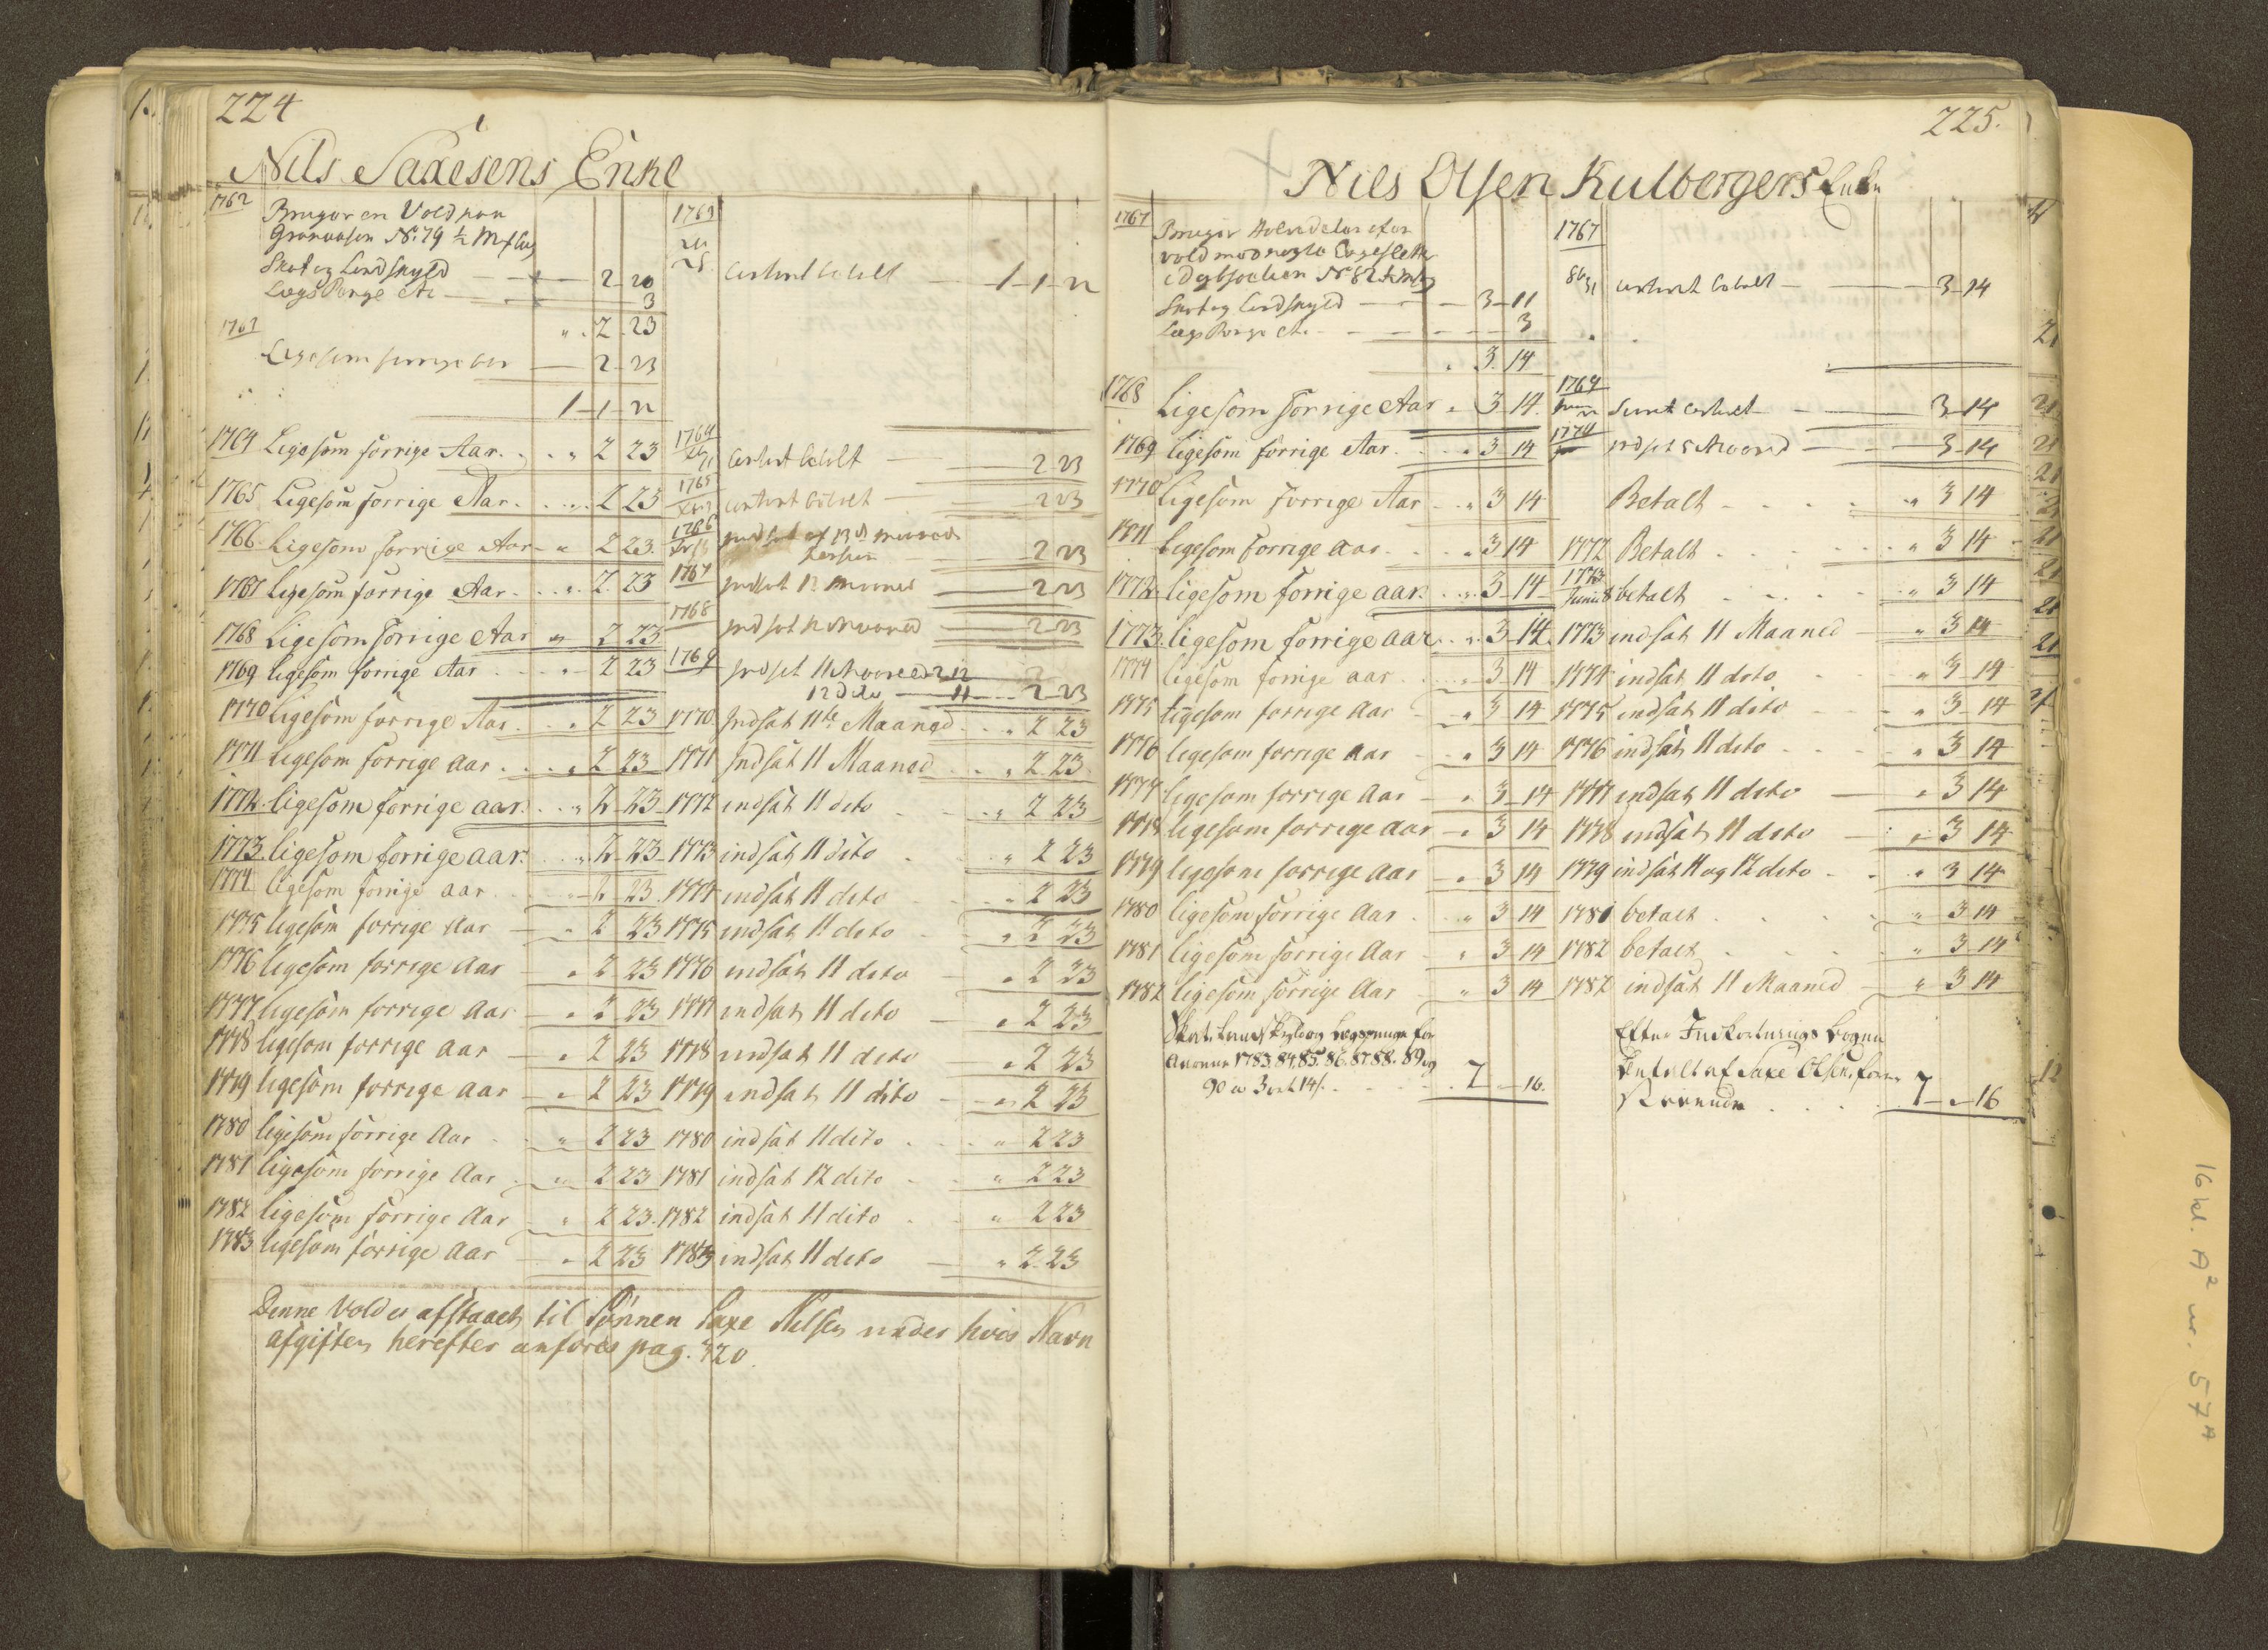 224
Nils Saxesens Enke
1762
Bruger en Vold paa
Graraasen No. 79 ½ Ml: Sæ
Skat og Landskyld 2 20
Lægs Penge etc 3
" 2 23
1763
Ligesom forrige Aar 2 23
1 1 22
1764 Ligesom forrige Aar " 2 23
1765 Ligesom forrige Aar " 2 23
1766 Ligesom forrige Aar " 2 23
1767 Ligesom forrige Aar " 2 23
1768 Ligesom forrige Aar " 2 23
1769 ligesom forrige Aar " 2 23
1770 ligesom forrige Aar " 2 23
1771 ligesom forrige Aar " 2 23
1772 ligesom forrige aar " 2 23
1773 ligesom forrige aar " 2 23
1774 ligesom forrige aar " 2 23
1775 ligesom forrige Aar " 2 23
1776 ligesom forrige Aar " 2 23
1777 ligesom forrige Aar " 2 23
1778 ligesom forrige Aar " 2 23
1779 ligesom forrige Aar " 2 23
1780 ligesom forrige Aar " 2 23
1781 ligesom forrige Aar " 2 23
1782 ligesom forrige Aar " 2 23
1783 ligesom forrige Aar " 2 23
1763
Contant betalt 1 1 22
1764
Contant betalt 2 23
1765
contant betalt 2 23
1766
2 23
1767 indsat 12 Maaned 2 23
1768
indsat Maaned 2 23
1769 indsat 11 Maaned 2 12
12 dito 11 2 23
1770 Indsat 11te Maaned " 2 23
1771 Indsat 11 Maaned " 2 23
1772 indsat 11 dito " 2 23
1773 indsat 11 dito " 2 23
1774 indsat 11 dito " 2 23
1775 indsat 11 dito " 2 23
1776 indsat 11 dito " 2 23
1777 indsat 11 dito " 2 23
1778 indsat 11 dito " 2 23
1779 indsat 11 dito " 2 23
1780 indsat 11 dito " 2 23
1781 indsat 12 dito " 2 23
1782 indsat 11 dito " 2 23
1783 indsat 11 dito " 2 23
Denne Vold er afstaaet til Sønnen Saxe Nilsen under hvis Navn
afgiften herefter anføres pag. 320
225.
Niels Olsen Kulbergers Enke
1767
Bruger
No 82
Skat og Landskyld 3 11
Lægs Penge etc 3
" 3 14
1768 Ligesom forrige Aar " 3 14
1769 ligesom forrige Aar " 3 14
1770 ligesom forrige Aar " 3 14
1771 ligesom forrige Aar " 3 14
1772 ligesom forrige aar " 3 14
1773 ligesom forrige aar " 3 14
1774 ligesom forrige aar " 3 14
1775 ligesom forrige Aar " 3 14
1776 ligesom forrige Aar " 3 14
1777 ligesom forrige Aar " 3 14
1778 ligesom forrige Aar " 3 14
1779 ligesom forrige Aar " 3 14
1780 ligesom forrige Aar " 3 14
1781 ligesom forrige Aar " 3 14
1782 ligesom forrige Aar " 3 14
Skat, Landskyld og Lægspenge for
Aarene 1783. 84. 85. 86. 87. 88. 89 og
90 a 3 ort 14 s. 7 - 16.
1767
contant betalt 3 14
1769
contant 3 14
1770
indsat Maaned 3 14
Betalt " 3 14
1772 Betalt " 3 14
1773
Junii 8 betalt " 3 14
1773 indsat 11 Maaned " 3 14
1774 indsat 11 dito " 3 14
1775 indsat 11 dito " 3 14
1776 indsat 11 dito " 3 14
1777 indsat 11 dito " 3 14
1778 indsat 11 dito " 3 14
1779 indsat 11 og 12 dito " 3 14
1781 betalt " 3 14
1782 betalt " 3 14
1782 indsat 11 Maaned " 3 14
Efter Indkorterings Bogen
betalt af Saxe Olsen, for
7 " 16
16 kl. A² nr. 57ᴬ